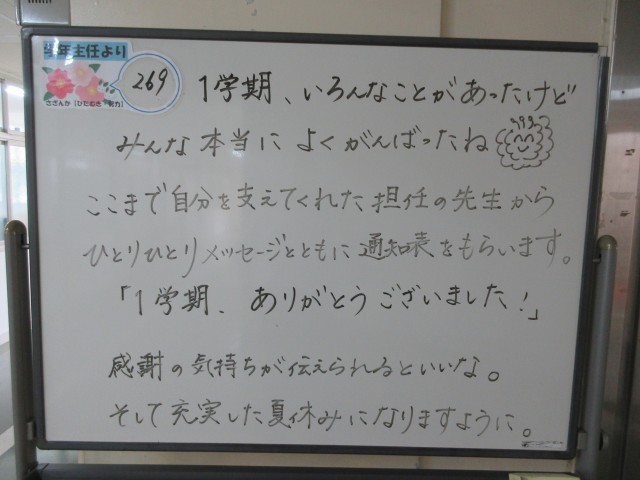 学年主任より
269
さざんか[ひたむき 努力]
1学期、いろんなことがあったけど
みんな本当によくがんばったね
ここまで自分を支えてくれた担任の先生から
ひとりひとりメッセージとともに通知表をもらいます。
「1学期、ありがとうございました!」
感謝の気持ちが伝えられるといいな。
そして充実した夏休みになりますように。